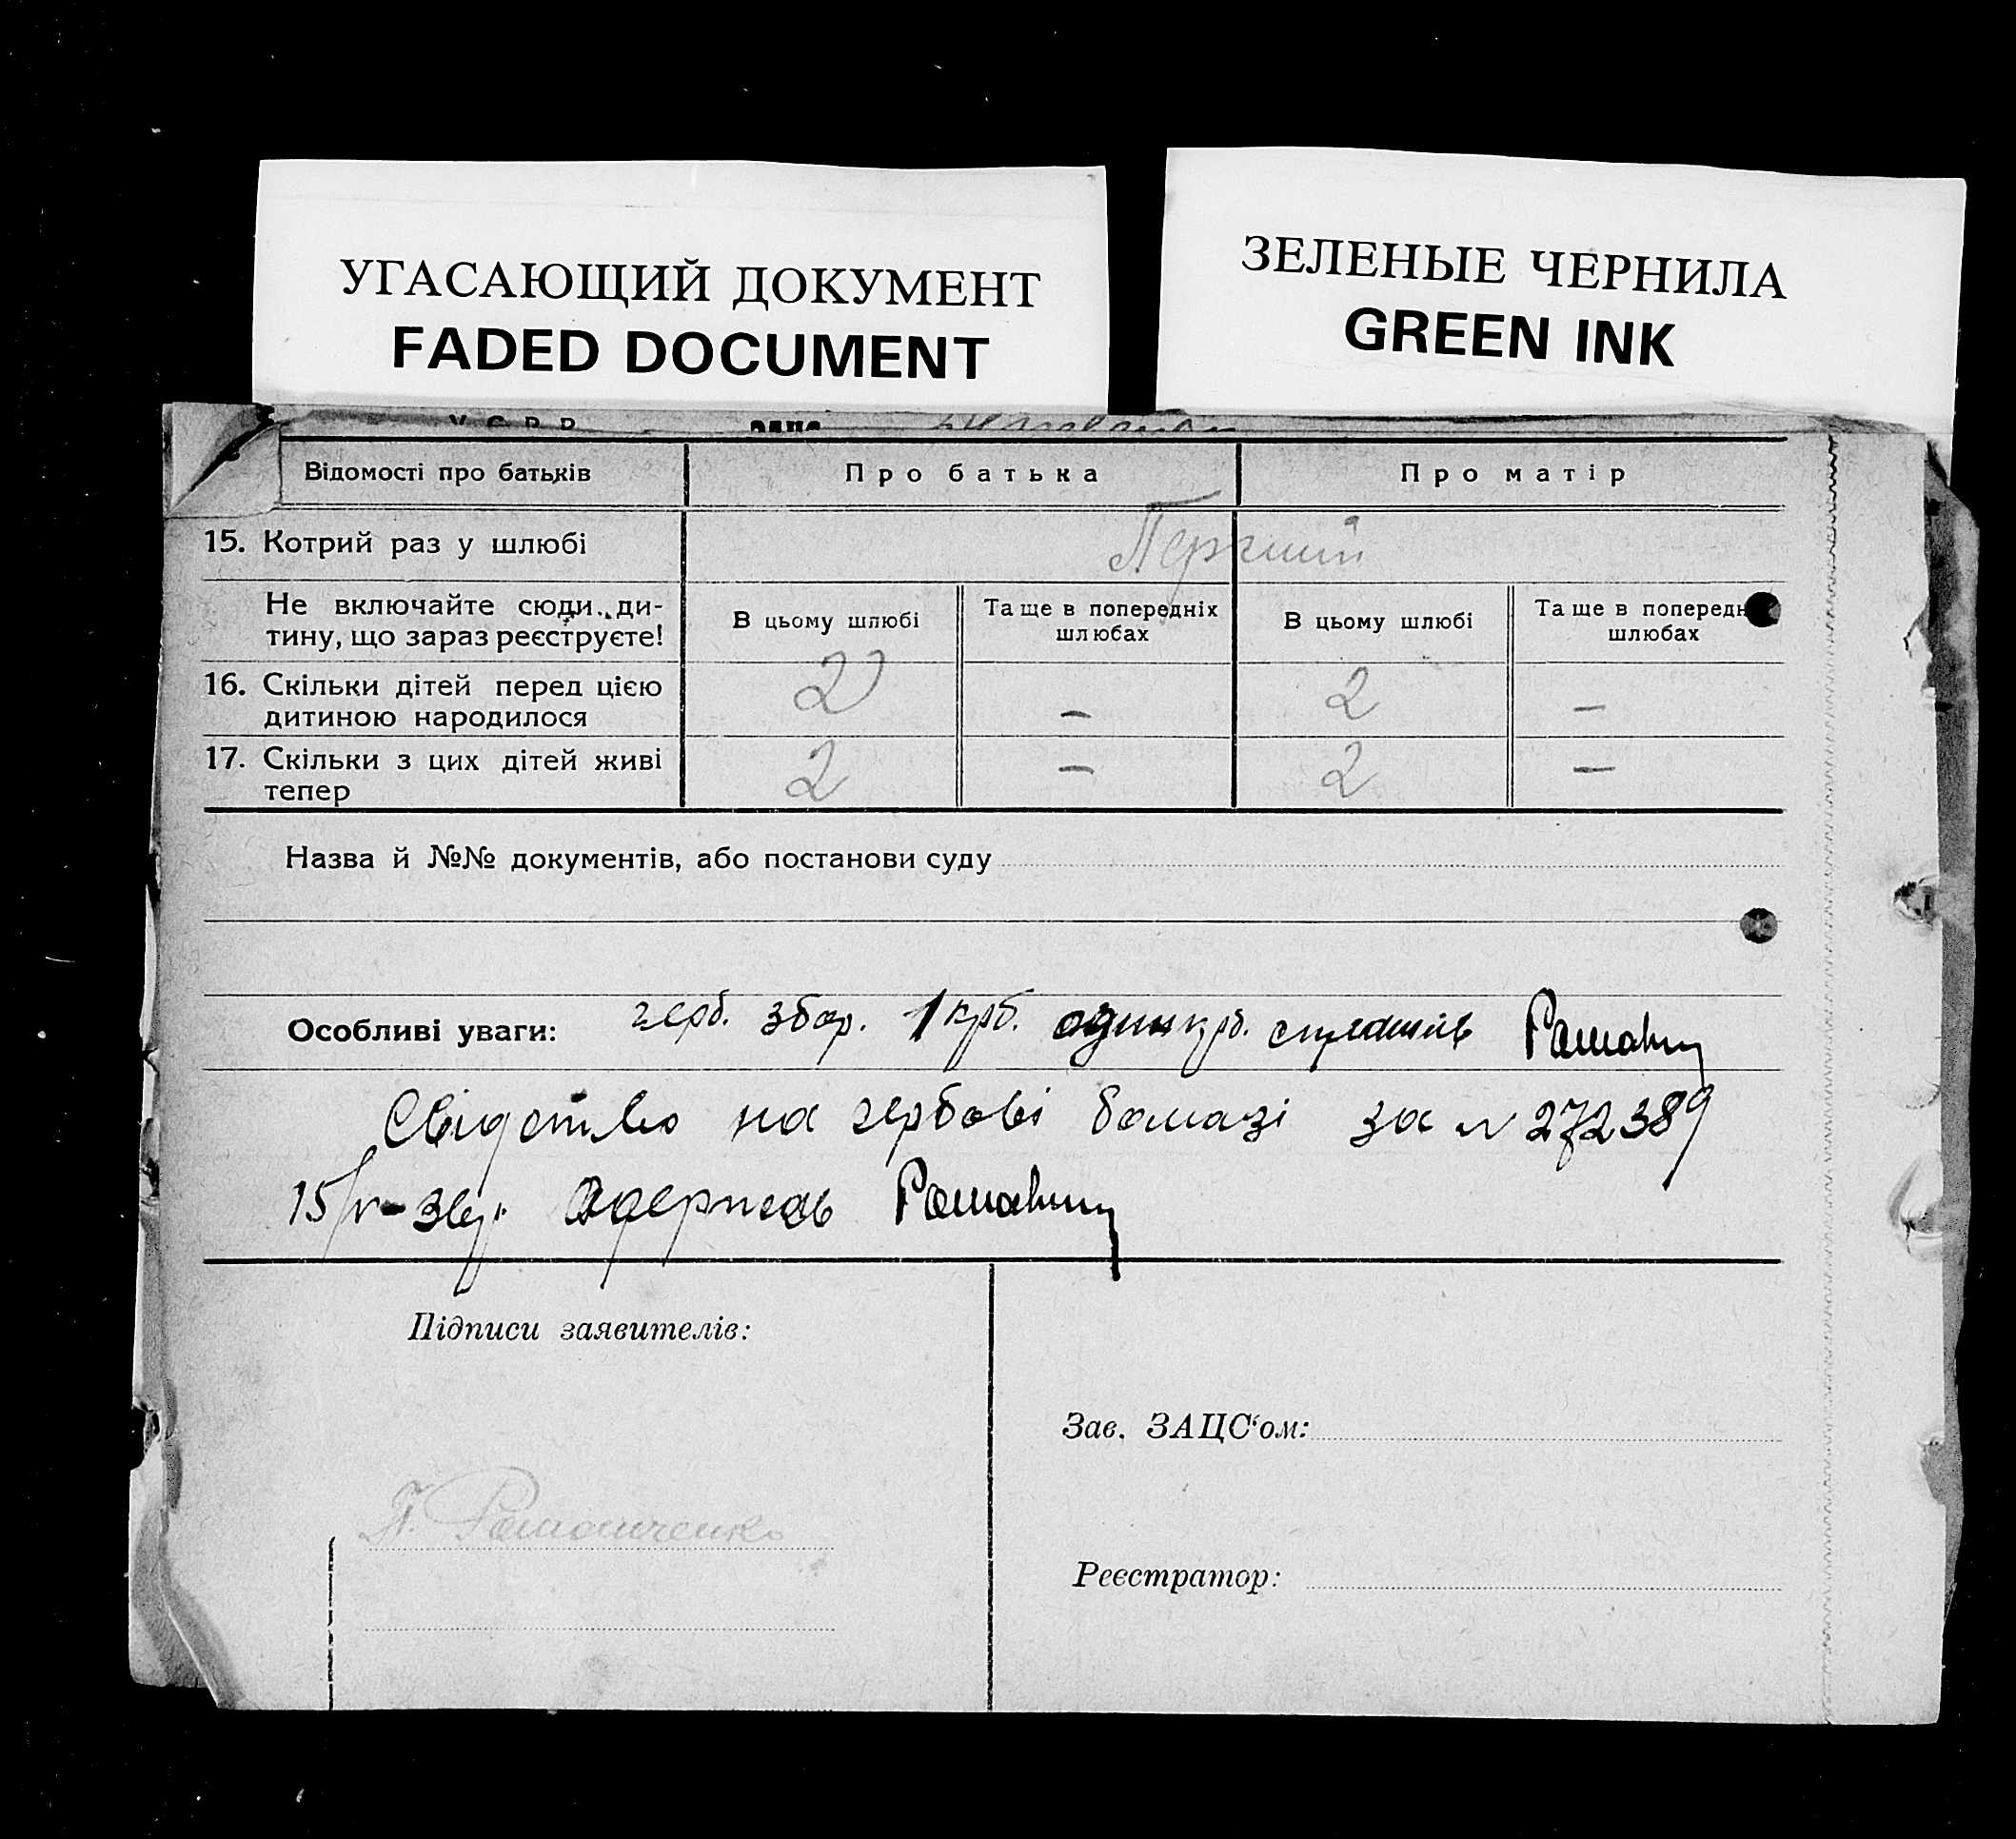 УГАСАЮЩИЙ ДОКУМЕНТ
FADED DOCUMENT
ЗЕЛЕНЫЕ ЧЕРНИЛА
GREEN INK
Відомості про батьків Про батька Про матір
15. Котрий раз у шлюбі Перший
Не включайте сюди ди-
тину, що зараз реєструєте!
В цьому шлюбі
Та ще в попередніх
шлюбах
В цьому шлюбі
Та ще в попередн
шлюбах
16. Скільки дітей перед цією
дитиною народилося
2 – 2 –
17. Скільки з цих дітей живі
тепер
2 – 2 –
Назва й №№ документів, або постанови суду
Особливі уваги: герб. збор. 1 крб. один крб. сплатив
Свідотво на гербові бомазі за N 272389
15/V-36р. Одержав
Підписи заявителів:
Зав. ЗАЦС‘ом:
Реєстратор: